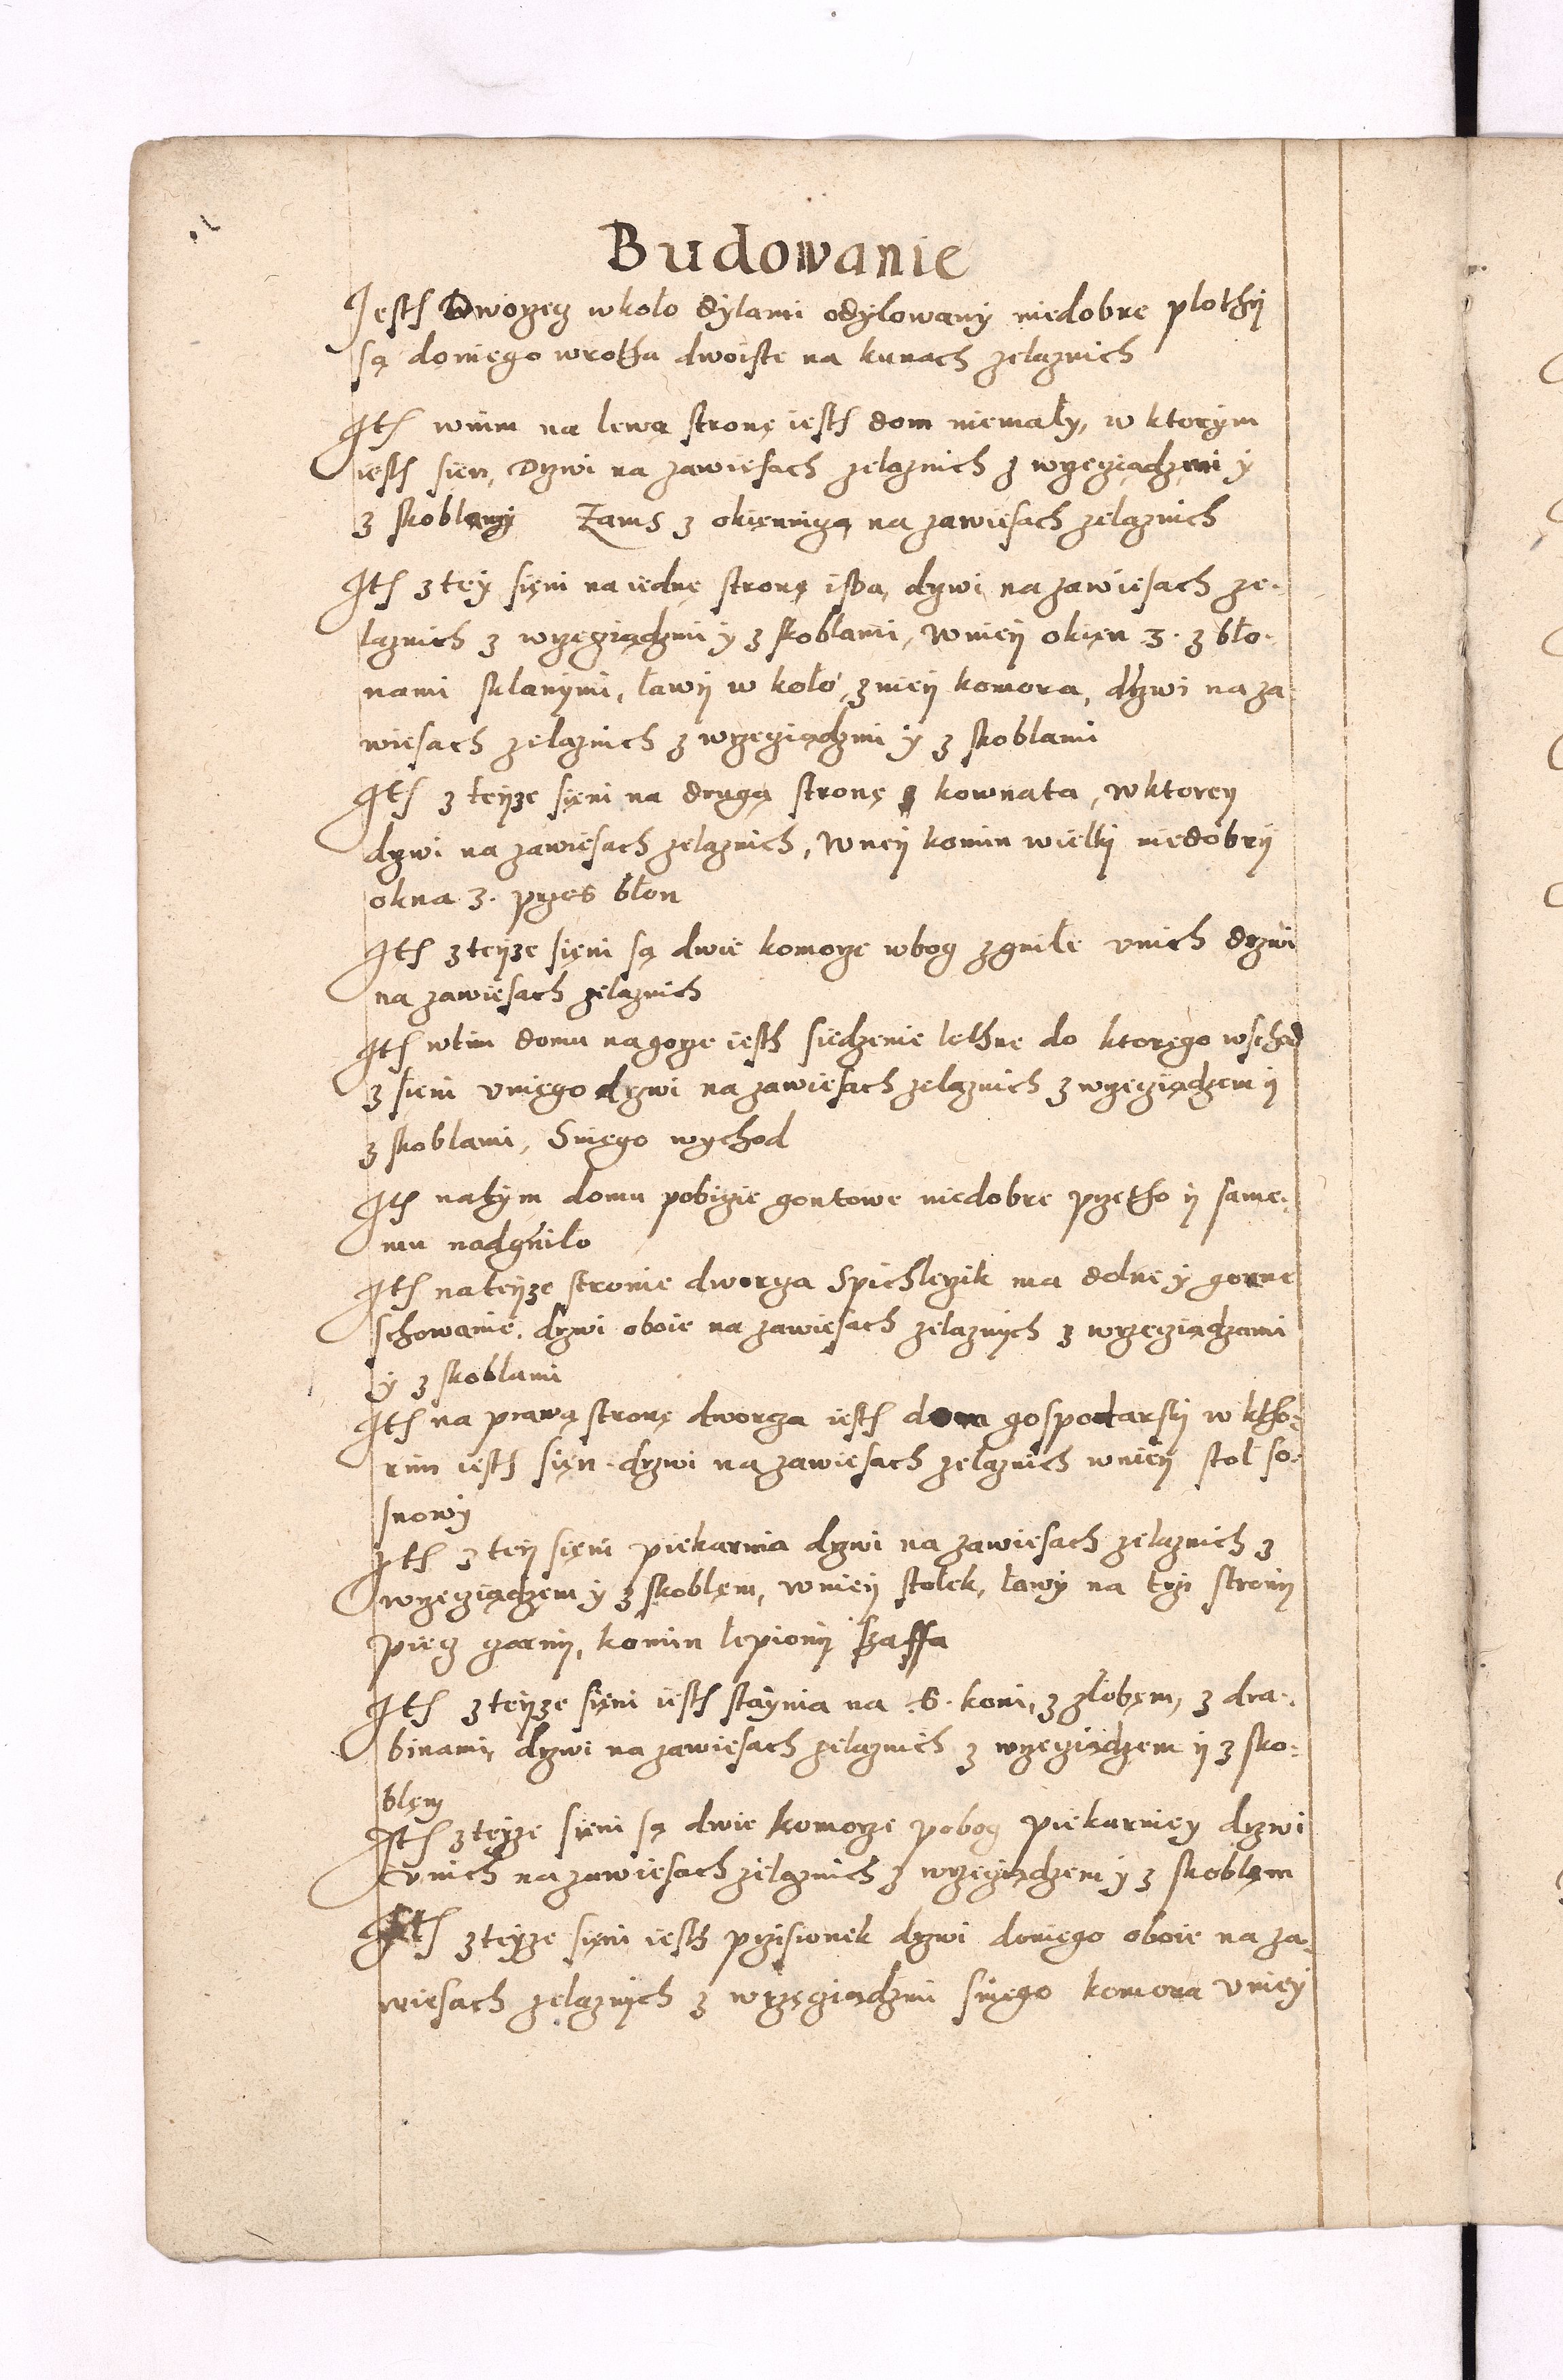 Budowanie
Jesth Dworzec wkoło dylami odylowany niedobre plothy
są doniego wrotha dwoiste na kunach zelaznich
Ith wnim na lewą stronę iesth dom niemały, w ktorym
iesth sien, Drzwi na zawiesach zelaznich z wrzeciądzmi y
z skoblami Zams z okięnnicą na zawiesach zelaznich
Ith z tey sięni na iednę stronę isba, drzwi na zawiesach ze-
laznich z wrzeciądzmi y z skoblami, wniey okięn 3. z bło-
nami sklanymi, ławy w koło, zniey komora, drzwi na za-
wiesach zelaznich z wrzeciądzmi y z skoblami
Ith z teyze sięni na drugą stronę kownata, wktorey
drzwi na zawiesach zelaznich, wney komin wielki niedobry
okna 3. przes błon
Ith z teyze sięni są dwie komorze wbog zgniłe vnich drzwi
na zawiesach zelaznich
Ith wtim domu nagorze iesth siedzenie lethne do ktorego wschod
z sieni vniego drzwi na zawiesach zelaznich z wrzeciądzem y
z skoblami, Sniego wychod
Ith natym domu pobicie gontowe niedobre przetho y same-
mu nadgniło
Ith nateyze stronie dworca Spichlerzik ma dolne y gorne
schowanie, drzwi oboie na zawiesach zelaznych z wrzeciądzami
y z skoblami
Ith na prawą stronę dworca iesth dom gospodarski w ktho-
rim iesth sięn. drzwi na zawiesach zelaznich wniey stoł so-
snowy
Ith z tey sięni piekarnia drzwi na zawiesach zelaznich z
wrzeciądzem y z skoblęm, wniey stołek, ławy na trzi strony
piec garny, komin lepiony szaffa
Ith z teyze sięni iesth staynia na .6. koni, z złobęm, z dra-
binami, drzwi na zawiesach zelaznich z wrzeciądzem y z sko-
blęm
Ith z teyze sięni są dwie komorze pobog piekarniey drzwi
vnich na zawiesach zelaznich z wrzeciądzem y z skoblęm
Ith z teyze sięni iesth przisionek drzwi doniego oboie na za-
wiesach zelaznych z wrzęciądzmi sniego komora vniey